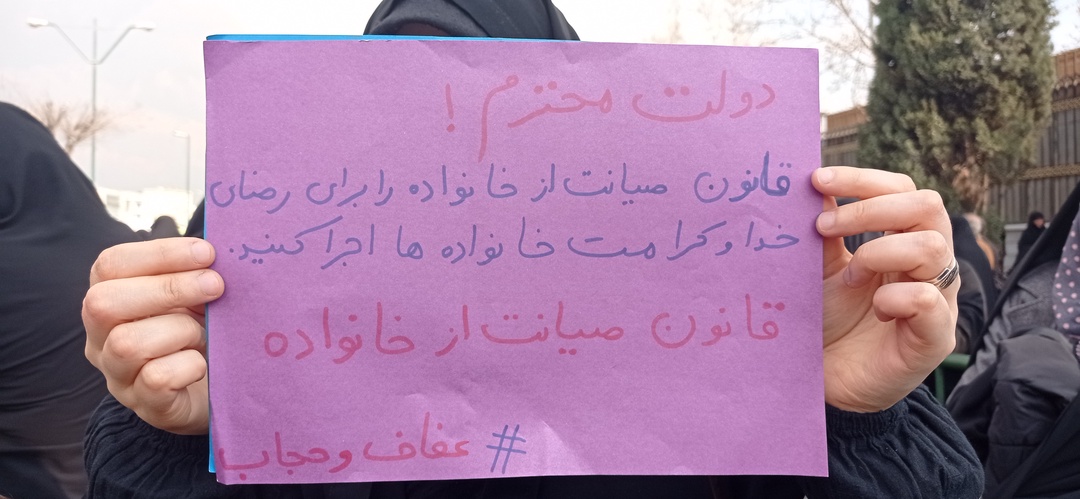 دولت محترم !
قانون صیانت از خانواده را برای رضای
خدا و کرامت خانواده ها اجرا کنید.
قانون صیانت از خانواده
# عفاف و حجاب